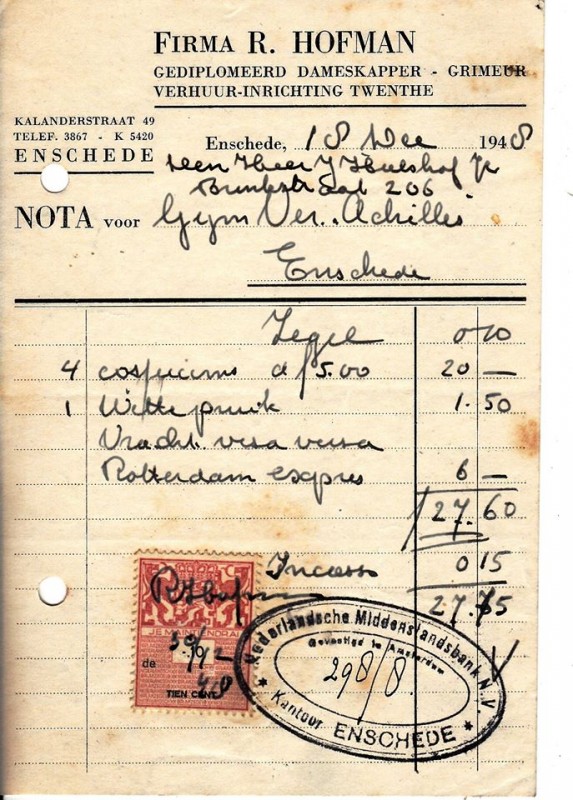 FIRMA R. HOFMAN
GEDIPLOMEERD DAMESKAPPER - GRIMEUR
VERHUUR-INRICHTING TWENTHE
KALANDERSTRAAT 49
TELEF. 3867 - K 5420
ENSCHEDE
Enschede, 18 Dec 1948
Den Heer J Hulshof Jr
Brinkstraat 206
NOTA voor Gym Ver. Achilles
Enschede
Zegel 0 10
4 costuums a f 5.00 20 —
1 Witte pruik 1.50
Vracht visa versa
Rotterdam expres 6 —
27.60
Incasso 0 15
27.75
R Hofman
30/12
48
JE MAINTIENDRAI
10
TIEN CENT
Nederlandsche Middenstandsbank N.V.
Gevestigd te Amsterdam
298/8.
Kantoor ENSCHEDE